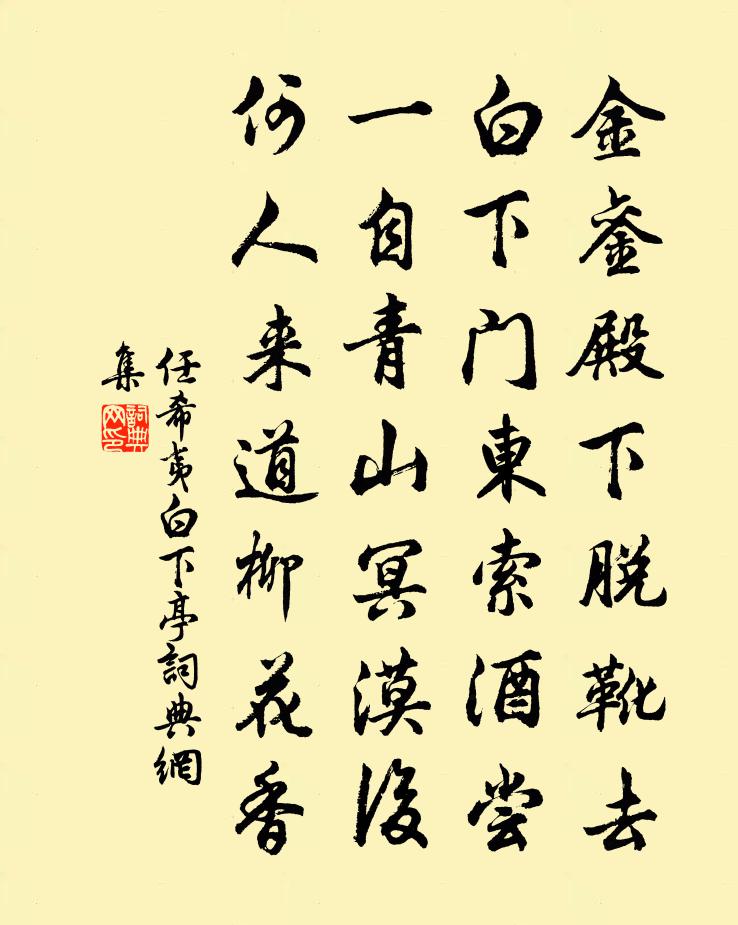 金銮殿下脱靴去
白下门東索酒尝
一自青山冥漠後
何人来道柳花香
任希夷白下亭詞典網
集
詞典网印